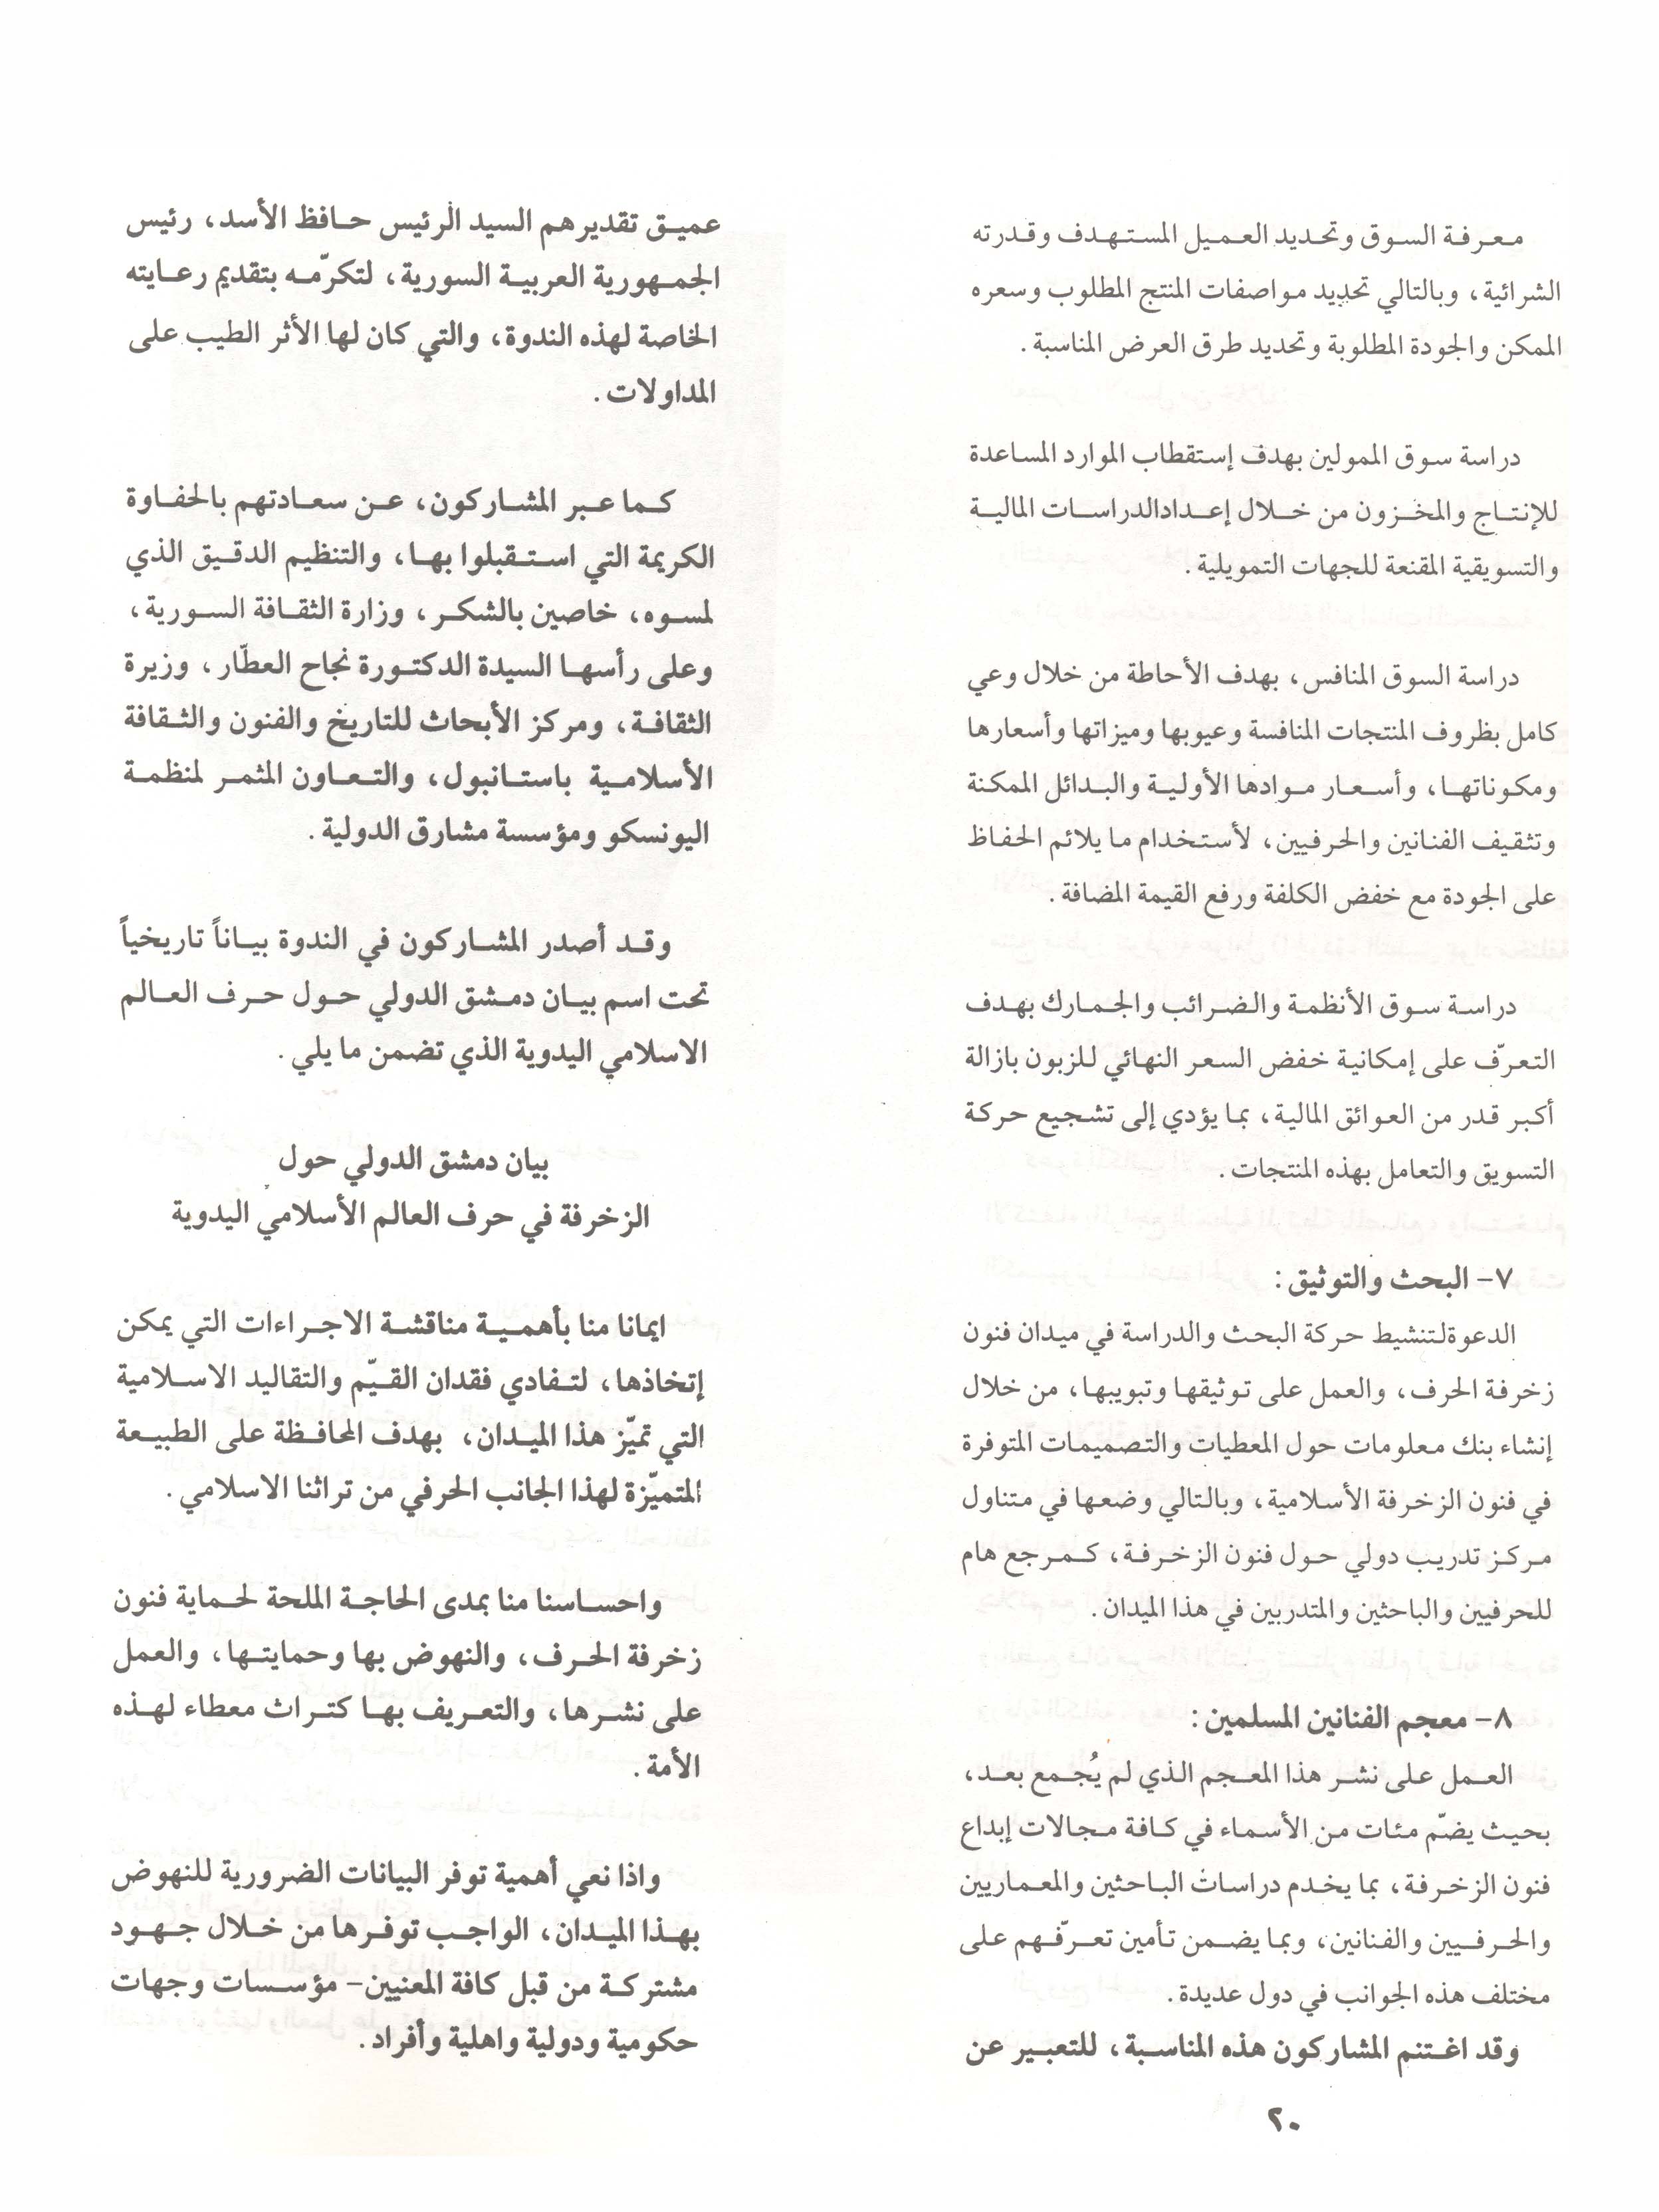 معرفة السوق وتحديد العميل المستهدف وقدرته
الشرائية، وبالتالي تحديد مواصفات المنتج المطلوب وسعره
الممكن والجودة المطلوبة وتحديد طرق العرض المناسبة.
دراسة سوق الممولين بهدف إستقطاب الموارد المساعدة
للإنتاج والمخزون من خلال إعدادالدراسات المالية
والتسويقية المقنعة للجهات التمويلية.
دراسة السوق المنافس، بهدف الأحاطة من خلال وعي
كامل بظروف المنتجات المنافسة وعيوبها وميزاتها وأسعارها
ومكوناتها، وأسعار موادها الأولية والبدائل الممكنة
وتثقيف الفنانين والحرفيين، لأستخدام ما يلائم الحفاظ
على الجودة مع خفض الكلفة ورفع القيمة المضافة.
دراسة سوق الأنظمة والضرائب والجمارك بهدف
التعرّف على إمكانية خفض السعر النهائي للزبون بازالة
أكبر قدر من العوائق المالية، بما يؤدي إلى تشجيع حركة
التسويق والتعامل بهذه المنتجات.
٧- البحث والتوثيق:
الدعوةلتنشيط حركة البحث والدراسة في ميدان فنون
زخرفة الحرف، والعمل على توثيقها وتبويبها، من خلال
إنشاء بنك معلومات حول المعطيات والتصميمات المتوفرة
في فنون الزخرفة الأسلامية، وبالتالي وضعها في متناول
مركز تدريب دولي حول فنون الزخرفة، كمرجع هام
للحرفيين والباحثين والمتدربين في هذا الميدان.
٨- معجم الفنانين المسلمين:
العمل على نشر هذا المعجم الذي لم يُجمع بعد،
بحيث يضّم مئات من الأسماء في كافة مجالات إبداع
فنون الزخرفة، بما يخدم دراسات الباحثين والمعماريين
والحرفيين والفنانين، وبما يضمن تأمين تعرّفهم على
مختلف هذه الجوانب في دول عديدة.
وقد اغتنم المشاركون هذه المناسبة، للتعبير عن
٢٠
عميق تقديرهم السيد الرئيس حافظ الأسد، رئيس
الجمهورية العربية السورية، لتكرّمه بتقديم رعايته
الخاصة لهذه الندوة، والتي كان لها الأثر الطيب على
المداولات.
كما عبر المشاركون، عن سعادتهم بالحفاوة
الكريمة التي استقبلوا بها، والتنظيم الدقيق الذي
لمسوه، خاصين بالشكر، وزارة الثقافة السورية،
وعلى رأسها السيدة الدكتورة نجاح العطّار، وزيرة
الثقافة، ومركز الأبحاث للتاريخ والفنون والثقافة
الأسلامية باستانبول، والتعاون المثمر لمنظمة
اليونسكو ومؤسسة مشارق الدولية.
وقد أصدر المشاركون في الندوة بياناً تاريخياً
تحت اسم بيان دمشق الدولي حول حرف العالم
الاسلامي اليدوية الذي تضمن ما يلي.
بيان دمشق الدولي حول
الزخرفة في حرف العالم الأسلامي اليدوية
ايمانا منا بأهمية مناقشة الاجراءات التي يمكن
إتخاذها، لتفادي فقدان القيّم والتقاليد الاسلامية
التي تميّز هذا الميدان، بهدف المحافظة على الطبيعة
المتميّزة لهذا الجانب الحرفي من تراثنا الاسلامي.
واحساسنا منا بمدى الحاجة الملحة لحماية فنون
زخرفة الحرف، والنهوض بها وحمايتها، والعمل
على نشرها، والتعريف بها كتراث معطاء لهذه
الأمة.
واذا نعي أهمية توفر البيانات الضرورية للنهوض
بهذا الميدان، الواجب توفرها من خلال جهود
مشتركة من قبل كافة المعنيين- مؤسسات وجهات
حكومية ودولية واهلية وأفراد.